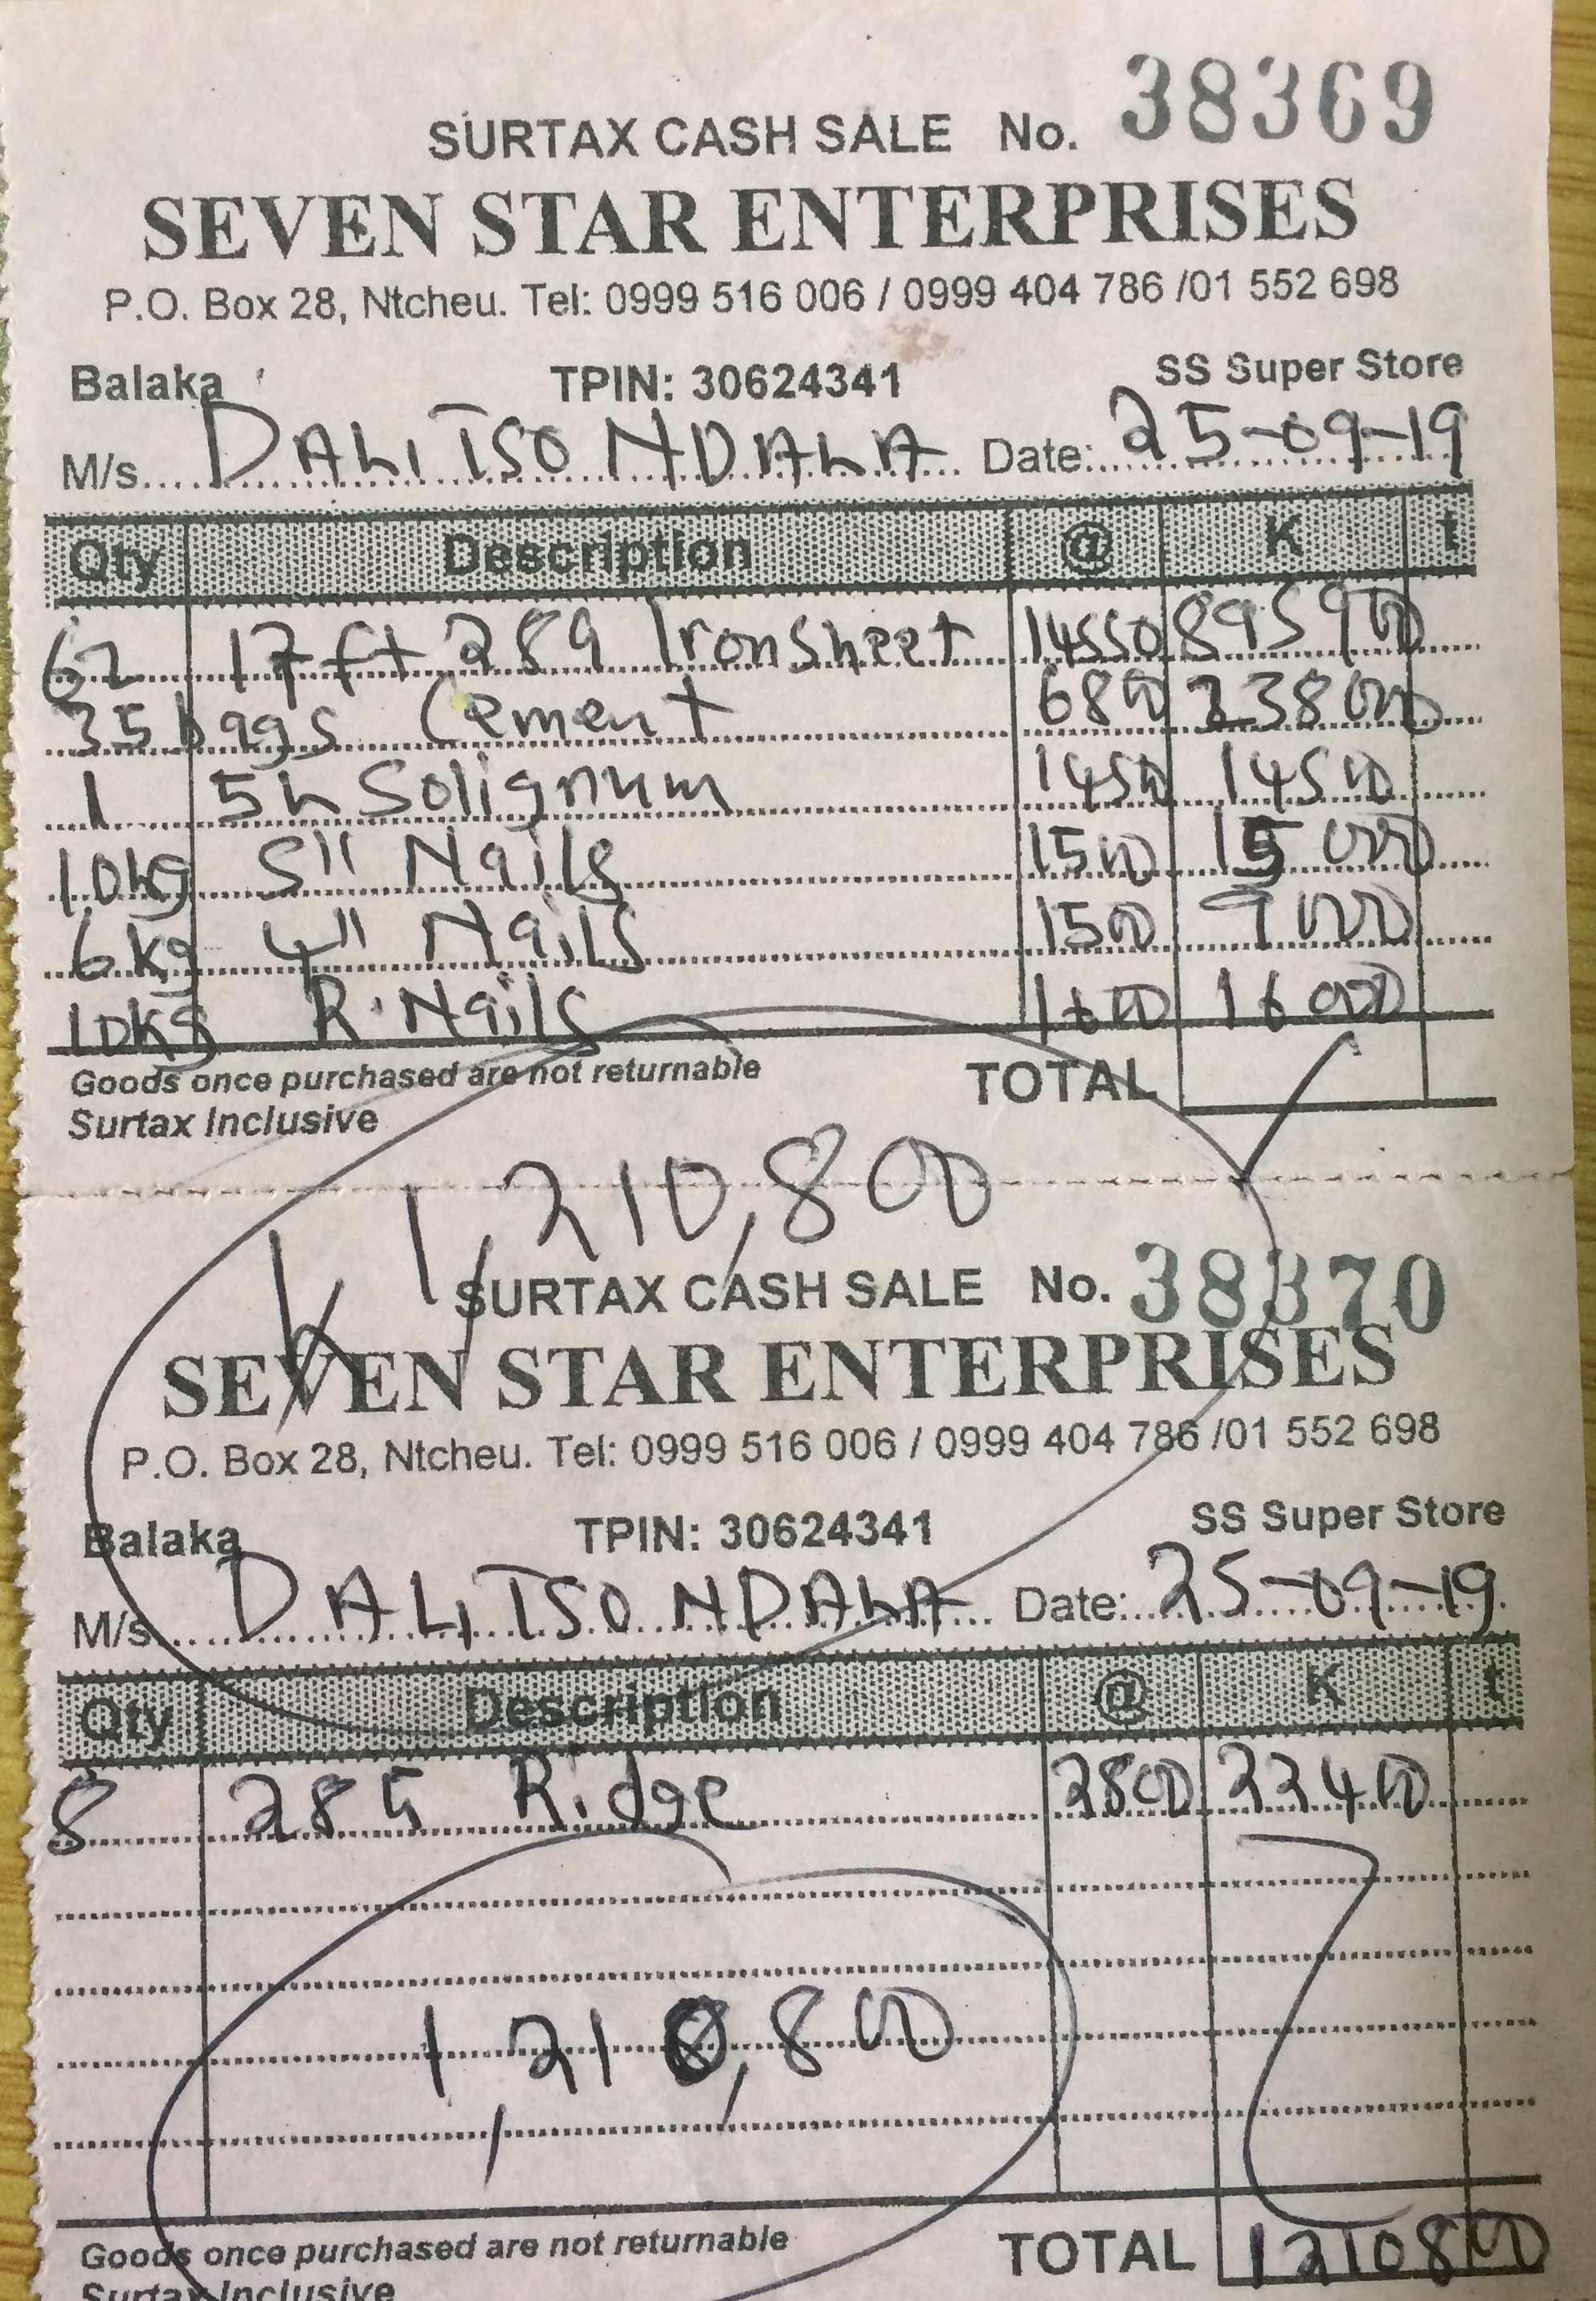 SURTAX CASH SALE No. 38369
SEVEN STAR ENTERPRISES
P.O. Box 28, Ntcheu. Tel: 0999 516 006 / 0999 404 786 /01 552 698
Balaka TPIN: 30624341 SS Super Store
M/s.... DALITSO NDALA ... Date:.. 25-09-19
Qty Description @ K t
62 17ft 28g Iron Sheet 14550 895900
35 bags Cement 6800 238000
1 5L Solignum 14500 14500
10kg 5" Nails 1500 15000
6kg 4" Nails 1500 9000
10kg R. Nails 1600 16000
Goods once purchased are not returnable TOTAL
Surtax Inclusive
K1,210,800
SURTAX CASH SALE No. 38370
SEVEN STAR ENTERPRISES
P.O. Box 28, Ntcheu. Tel: 0999 516 006 / 0999 404 786 /01 552 698
Balaka TPIN: 30624341 SS Super Store
M/s.... DALITSO NDALA ... Date:.. 25-09-19
Qty Description @ K t
8 28G Ridge 2800 22400
1,210,800
Goods once purchased are not returnable TOTAL 1210800
Surtax Inclusive